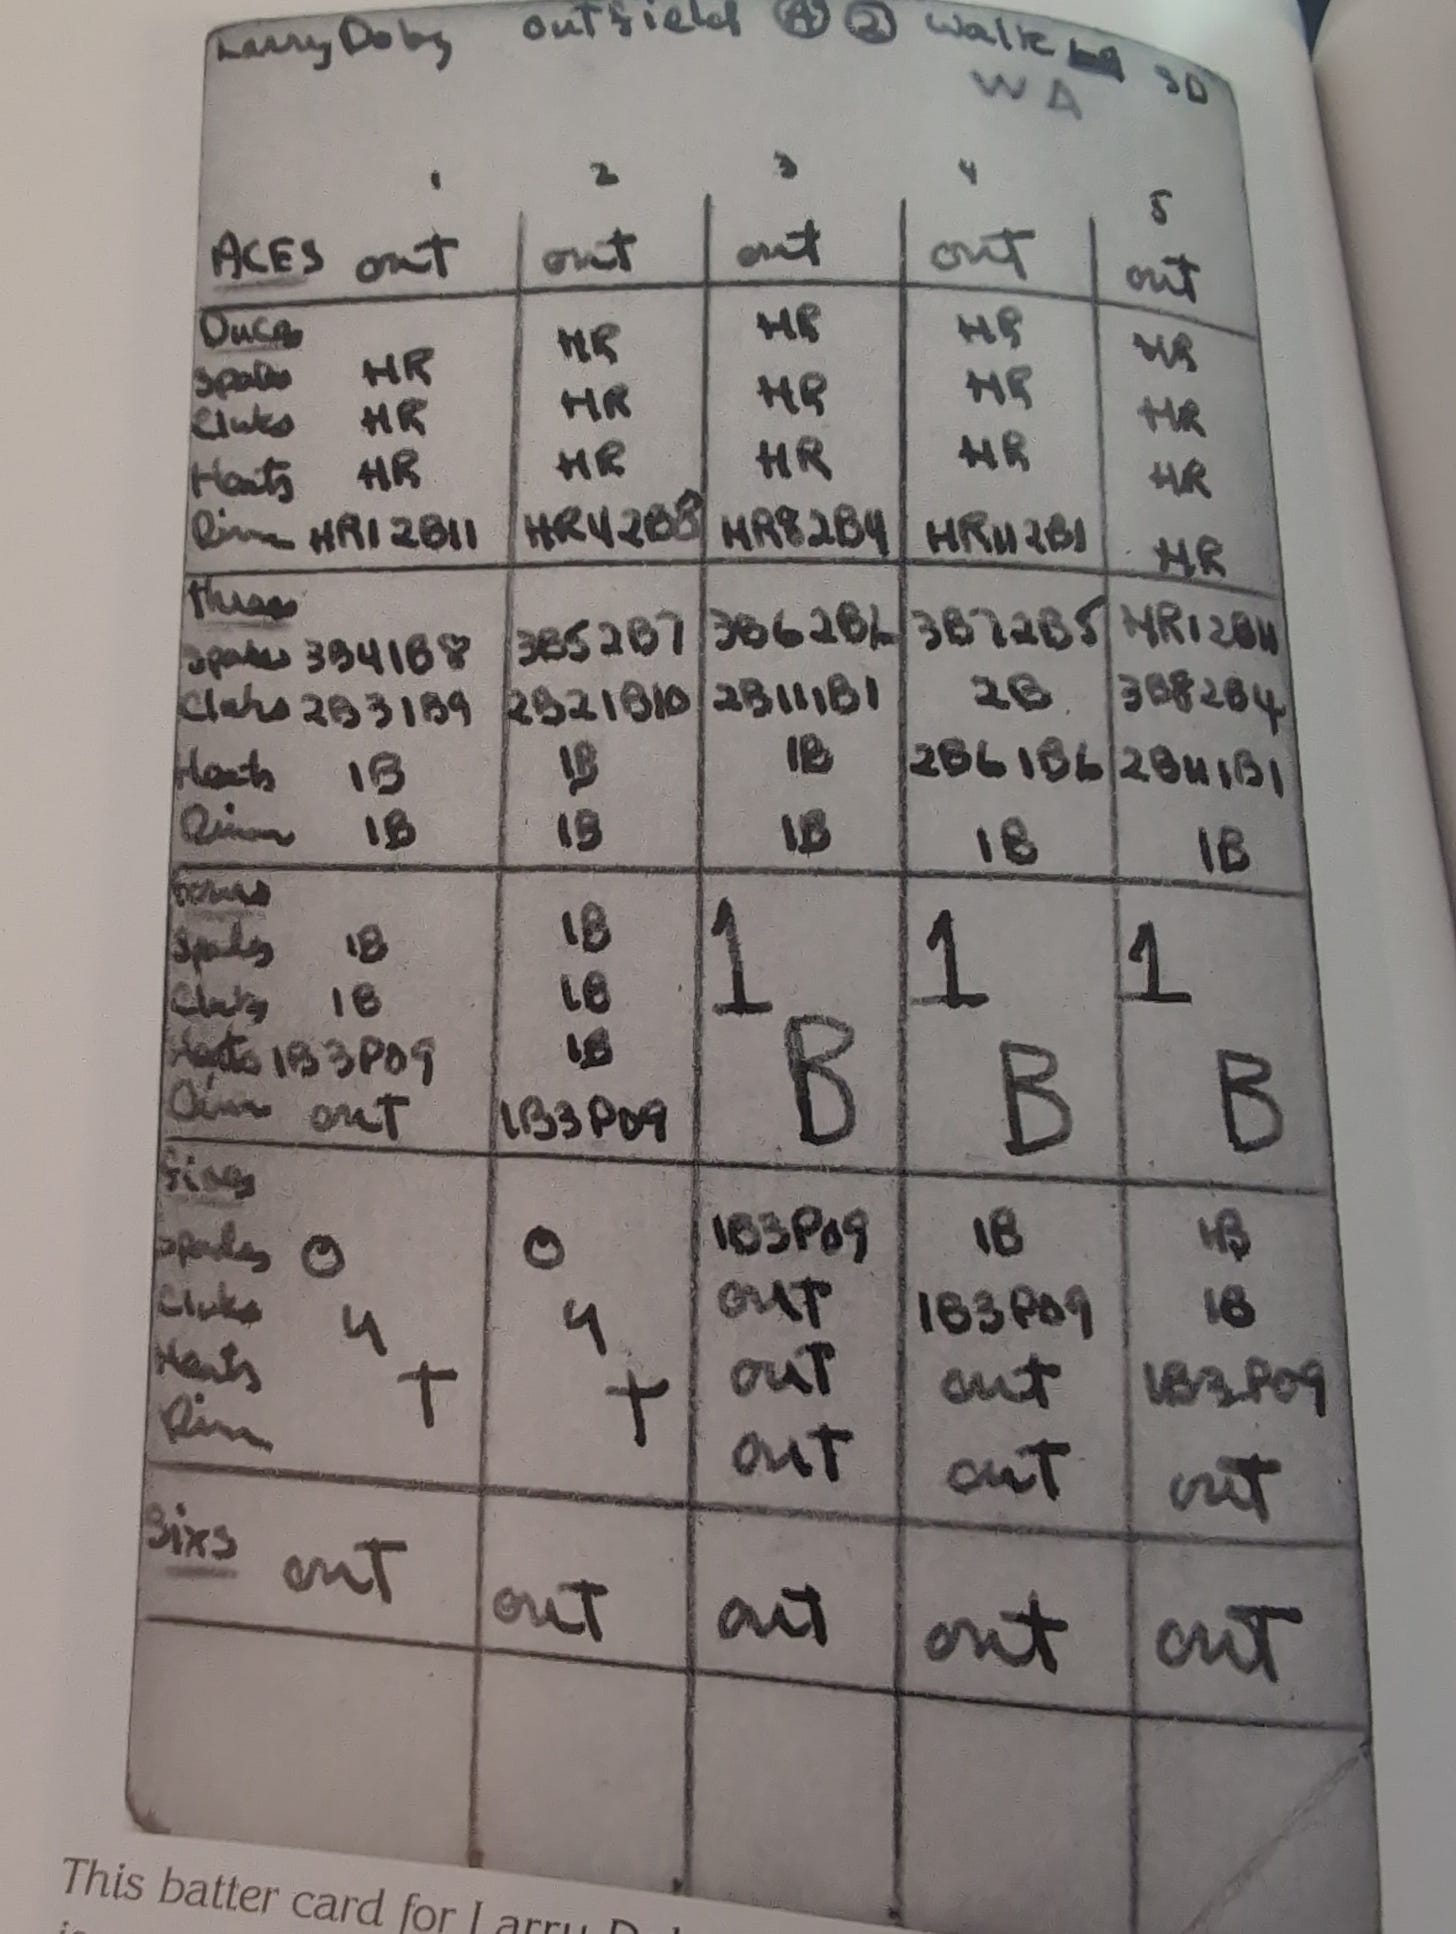 Larry Doby outfield A 2 Walk 3D
WA
1 2 3 4 5
ACES out out out out out
Duces HR HR HR HR
Spades HR HR
Clubs HR HR HR HR HR
Hearts HR HR HR HR HR
Dim HR12B11 HR42B8 HR82B4 HR112B1 HR
Threes
Spades 3B41B8 3B52B7 3B62B6 3B72B5 HR12B11
Clubs 2B31B9 2B21B10 2B111B1 2B 3B82B4
Hearts 1B 1B 1B 2B61B6 2B111B1
Dim 1B 1B 1B 1B 1B
Fours
Spades 1B 1B 1 1 1
Clubs 1B 1B
Hearts 1B3P09 1B B B B
Dim out 1B3P09
Fives
Spades O O 1B3P09 1B 1B
Clubs u u out 1B3P09 1B
Hearts T T out out 1B3P09
Dim out out out
Sixs out out out out out
This batter card for Larry